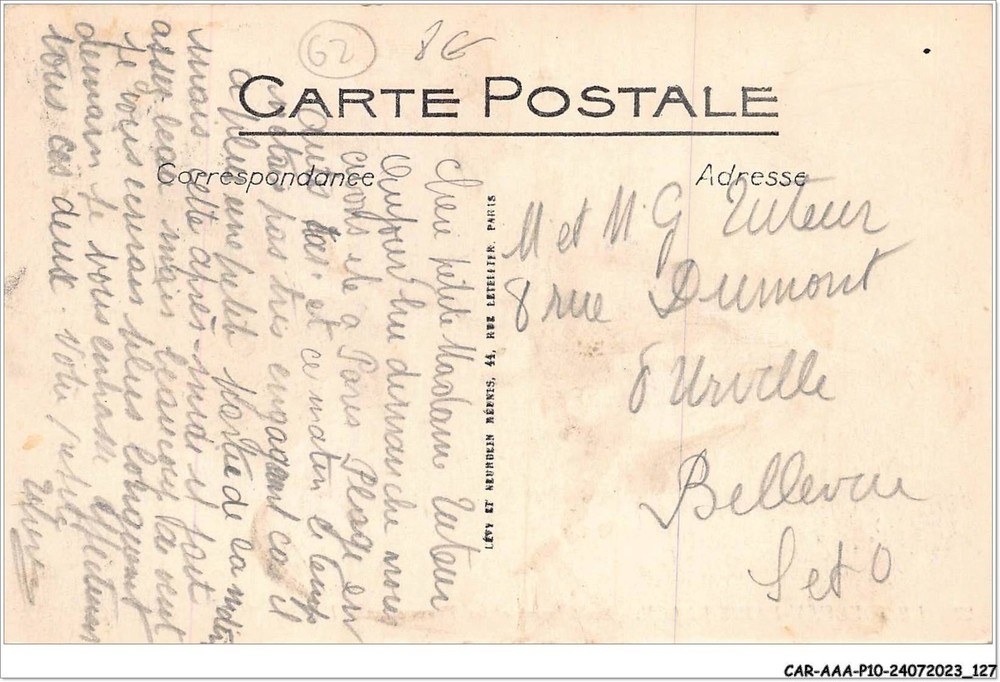 62
8€
CARTE POSTALE
Correspondance
Adresse
Chère petite Madame Tuteur
Aujourd'hui dimanche nous
avons été à Paris Plage en
auto car et ce matin le temps
n'était pas très engageant car il
a plu une petit partie de la matin
mais cette après-midi il fait
assez beau mais beaucoup de vent
Je vous écrirais plus longuement
demain je vous embrasse affectueus
tous les deux. Votre petite
LÉVY ET NEURDEIN RÉUNIS, 44, RUE LETELLIER, PARIS
M et M G Tuteur
8 rue Dumont
d'Urville
Bellevue
S et O
CAR-AAA-P10-24072023_127